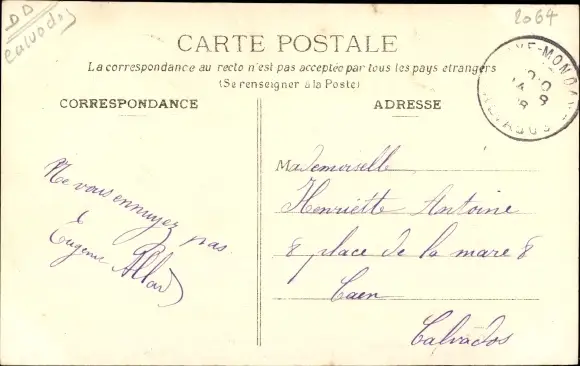 DD
Calvados
2064
CARTE POSTALE
La correspondance au recto n'est pas acceptée par tous les pays etrangers
(Se renseigner à la Poste)
CORRESPONDANCE
ADRESSE
Ne vous ennuyez pas
Eugene Allard
Mademoiselle
Henriette Antoine
8 place de la mare 8
Caen
Calvados